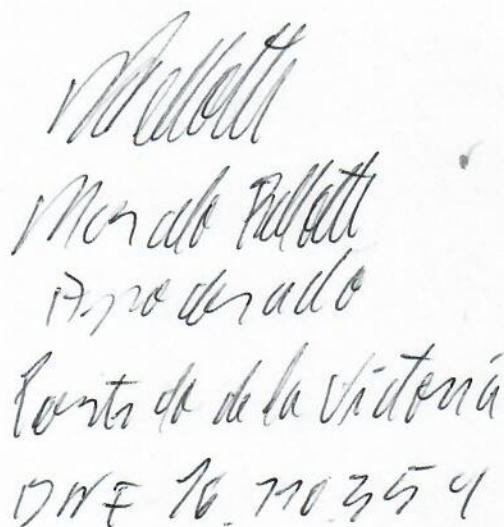 Marcelo Pellotti
Apoderado
Partido de la Victoria
DNI 16.110.354